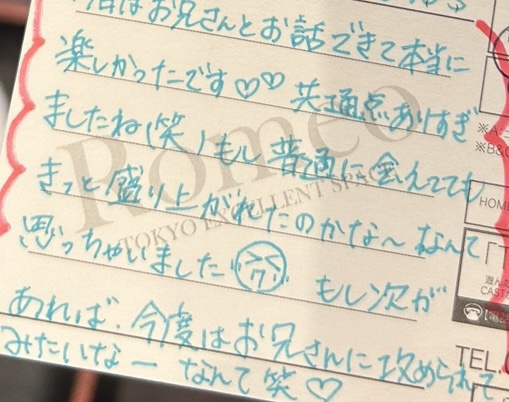 はお兄さんとお話できて本当に
楽しかったです♡♡ 共通点ありすぎ
ましたね(笑)もし普通に会えてても
きっと盛り上がれたのかな〜なんて
思っちゃいました もし次が
あれば、今度はお兄さんに攻められて
みたいなー なんて笑♡
Romeo
TOKYO EXCELLENT SPACE
※A:
※B&C
HOME
「T
遊ん
CAST
TEL.